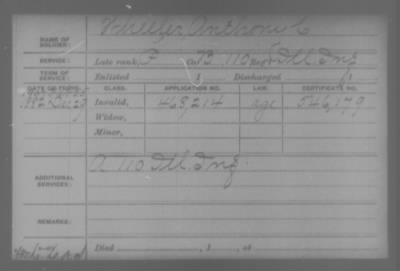 NAME OF SOLDIER: Wheeler, Anthony C
SERVICE: Late rank, P Co. B, 110 Reg't Ill. Inf.
TERM OF SERVICE: Enlisted , 1 Discharged , 1
DATE OF FILING. CLASS. APPLICATION NO. LAW. CERTIFICATE NO.
1882 Dec 29 Invalid, 468,214 age 546,179
Widow,
Minor,
ADDITIONAL SERVICES: A 110 Ill. Inf.
REMARKS:
Died , 1 , at